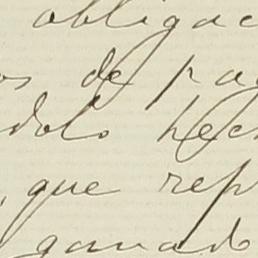 obligac
os de pa
dolo hech
, que rep
ganado